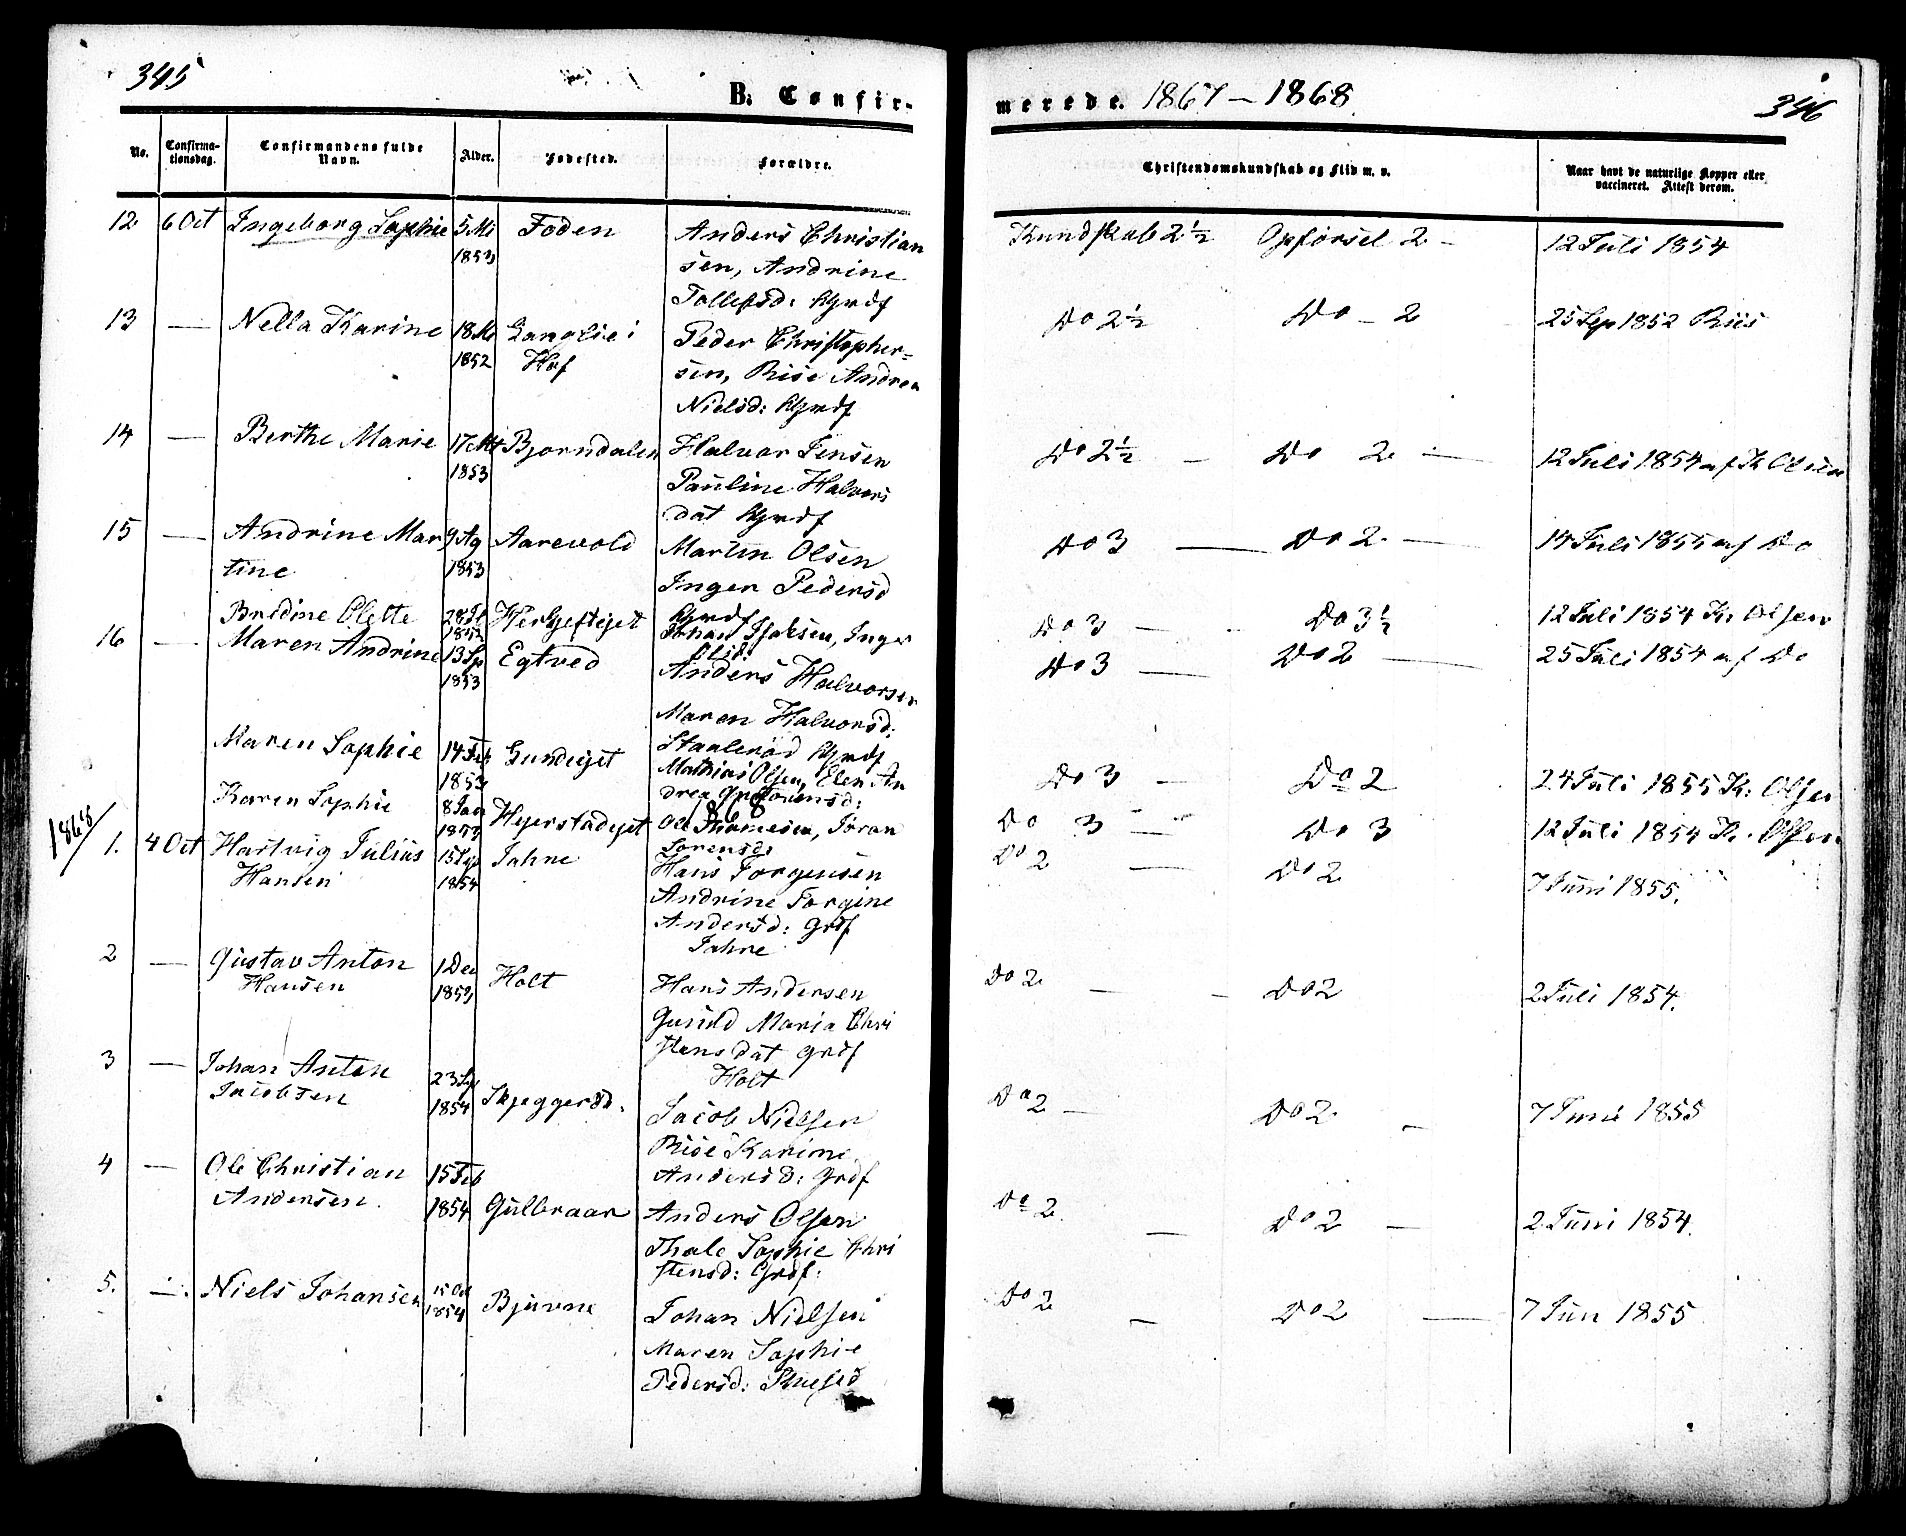 345
B. Confir-
No.
Confirma-
tionsdag.
Confirmandens fulde
Navn.
Alder.
Fødested.
Forældre.
12 6 Oct Ingeborg Sophie 5 Mi Foden Anders Christian
1853 sen, Andrine
Tollefsd: Grdf
13 — Nella Karine 18 Langlie i Peder Christopher-
1852 Hof sen, Andrea
Nielsd: Grdf
14 — Berthe Marie 17 Bjorndalen Halvor Jensen
1853 Pauline Halvors
dat Grdf
15 — Andrine Mar 9 Ag Aarevold Martin Olsen
tine 1853 Inger Pedersd
Grdf
Bredine Olette 28 Johan Isaksen, Inger
16 — Maren Andrine 13 Sp Egtved Anders Halvorsen
1853 Maren Halvorsd:
Grdf
Maren Sophie 14 Feb Mathias Olsen, Elen An
1853 drea
Karen Sophie 8 Jan Ole Thomesen, Joran
Sorensd:
1868
1868
1. 4 Oct Hartvig Julius 15 Sep Jahre Hans Jorgensen
Hansen 1854 Andrine Jorgine
Andersd: Grdf
Jahre
2 — Gustav Anton 1 Dec Holt Hans Andersen
Hansen 1853 Gunild Maria Chri
stensdat Grdf
Holt
3 — Johan Anton 23 Sep Skjeggerød. Jacob Nielsen
Jacobsen 1854 Karine
Andersd: Grdf
4 — Ole Christian 15 Feb Gulbraar Anders Olsen
Andersen. 1854 Thale Sophie Chri
stensd: Grdf:
5. — Niels Johansen 15 Oct Bjuvne Johan Nielsen
1854 Maren Sophie
Pedersd:
merede. 1867 — 1868
346
Christendomskundskab og Flid m. v.
Naar havt de naturlige Kopper eller
vaccineret. Attest derom.
Kundskab 2½ Opførsel 2 — 12 Juli 1854
Do 2½ Do — 2 25 Sep 1852 Riis
Do 2½ — Do 2 — 12 Juli 1854 af K Olsen
Do 3 — Do 2 — 14 Juli 1855 af Do
Do 3 — Do 3½ 12 Juli 1854 K. Olsen
Do 3 — Do 2 — 25 Juli 1854 af Do
Do 3 — Do 2 24 Juli 1855 K: Olsen
Do 3 — Do 3 12 Juli 1854 K. Olsen
Do 2 — Do 2 7 Juni 1855.
Do 2 — Do 2 2 Juli 1854.
Do 2 — Do 2 — 7 Juni 1855
Do 2 — Do 2 — 2 Juni 1854.
Do 2 — Do 2 — 7 Jun 1855